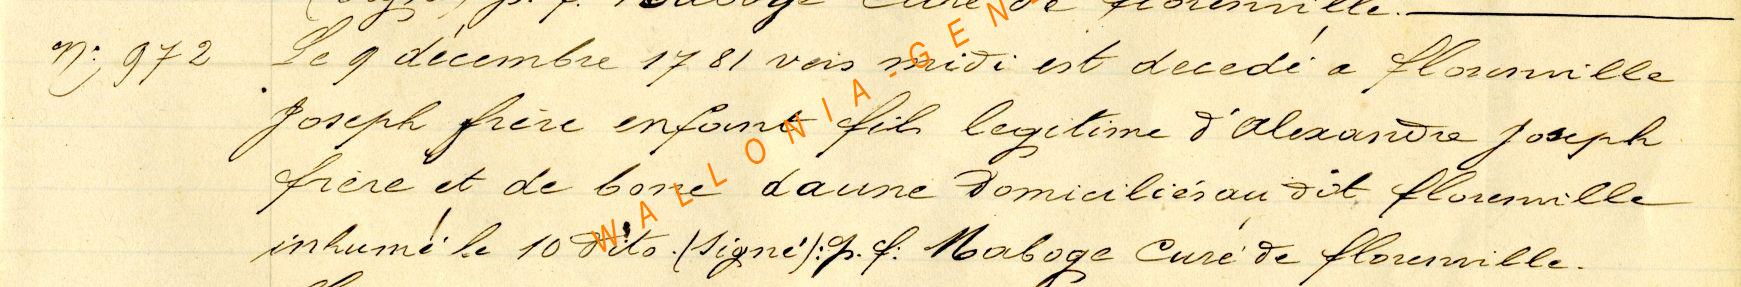 (signé) p. f. Maboge Curé de florenville.
N: 972 Le 9 décembre 1781 vers midi est decedé a florenville
Joseph frère enfant fils legitime d'Alexandre Joseph
frère et de bone daune Domiciliés au dit florenville
inhumé le 10 dito. (signé): p. f: Maboge Curé de florenville.
WALLONIA-GEN